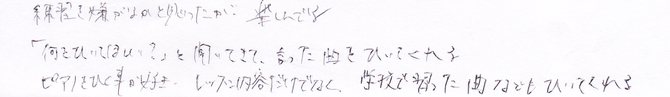 練習を嫌がるかと思ったが、楽しんでる
「何をひいてほしい?」と聞いてきて、言った曲をひいてくれる
ピアノをひく事が好き。レッスン内容だけでなく、学校で習った曲などもひいてくれる